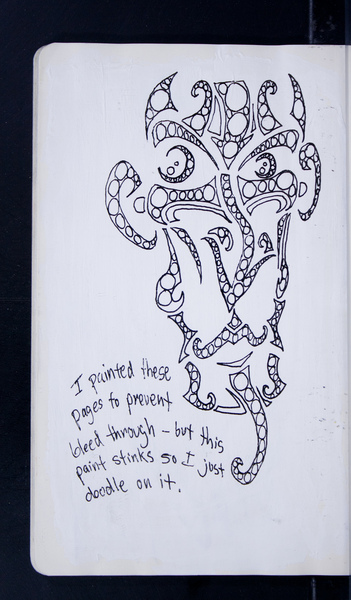 I painted these
pages to prevent
bleed through - but this
paint stinks so I just
doodle on it.